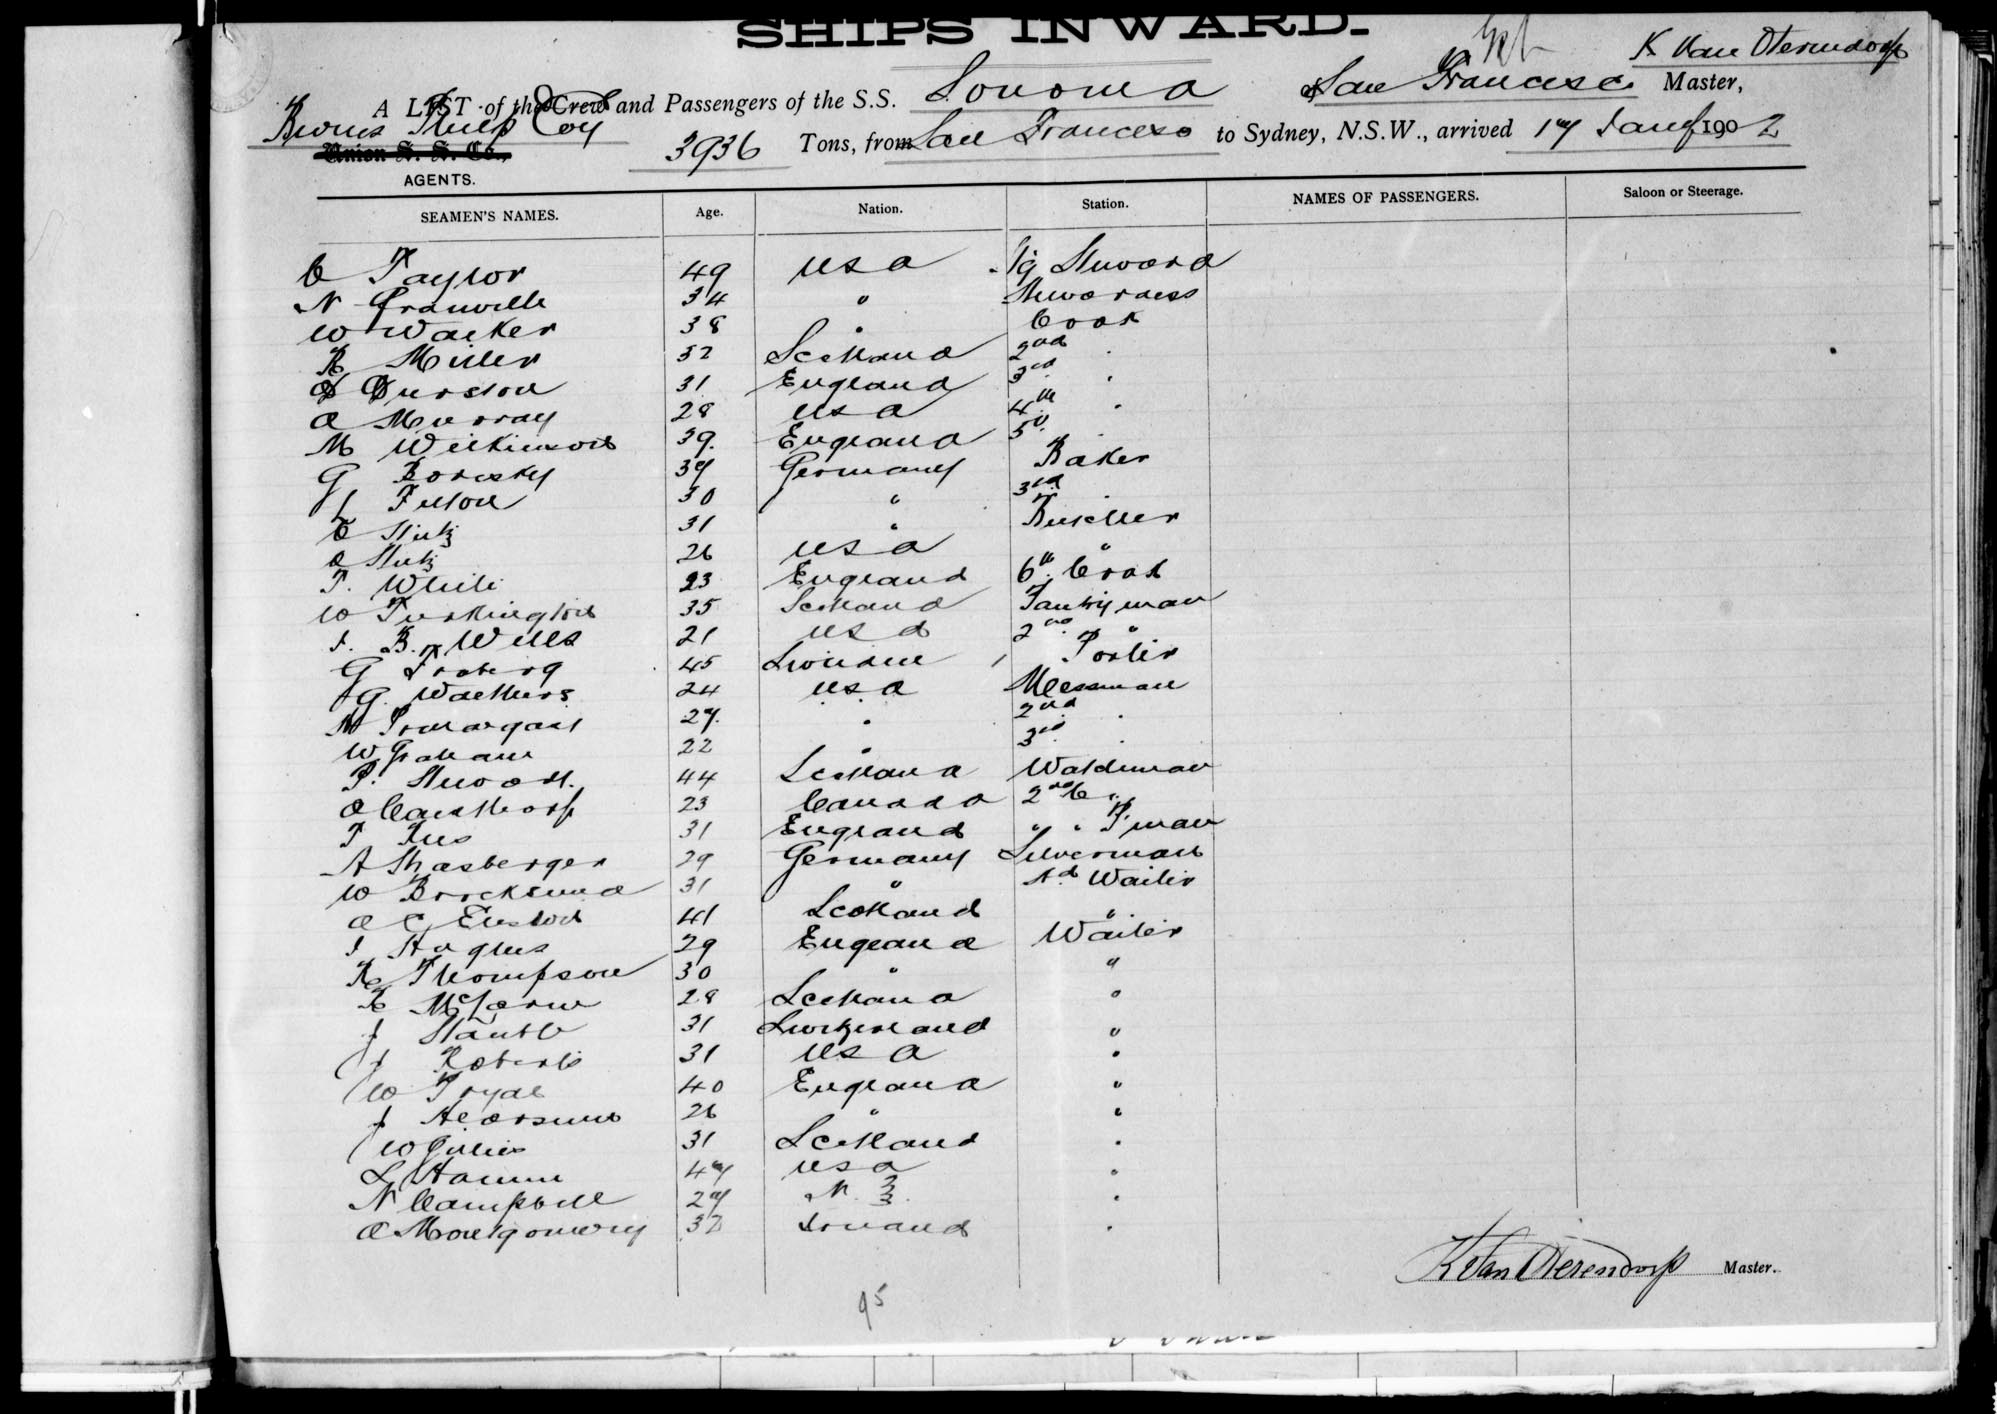 SHIPS INWARD.
K Van Oterendorp
A LIST of the Crew and Passengers of the S.S. Sonoma San Francisco Master,
Burns Philp Coy
Union S. S. Co.,
AGENTS.
3936 Tons, from San Francisco to Sydney, N.S.W., arrived 17 Jany 1902
SEAMEN'S NAMES. Age. Nation. Station. NAMES OF PASSENGERS. Saloon or Steerage.
C Taylor 49 USA Stg Steward
N Granville 34 " Stewardess
W Walker 38 " Cook
R Miller 32 Scotland 2nd "
Durston 31 England 3rd "
A Murray 28 USA 4th "
M Wilkinson 39 England 5th "
G 37 Germany Baker
30 " 3rd "
E Stutz 31 " Butcher
A Stutz 26 USA "
T. White 23 England 6th Cook
W Turkington 35 Scotland Pantryman
J. B. Wills 21 USA 2nd "
G Froberg 45 Sweden Porter
G. Walthers 24 USA Messman
27 " 2nd "
W Graham 22 " 3rd "
P. 44 Scotland Watchman
A 23 Canada 2nd C "
T 31 England " " P.man
A Strasberger 29 Germany Silverman
W 31 " Hd Waiter
A C 41 Scotland "
J Hughes 29 England Waiter
R Thompson 30 " "
R 28 Scotland "
J 31 Switzerland "
J Roberts 31 USA "
W Pryal 40 England "
J 26 " "
W Gillies 31 Scotland "
L Hamm 47 USA "
N Campbell 27 N. Z. "
A Montgomery 32 Ireland "
K Van Oterendorp Master.
95